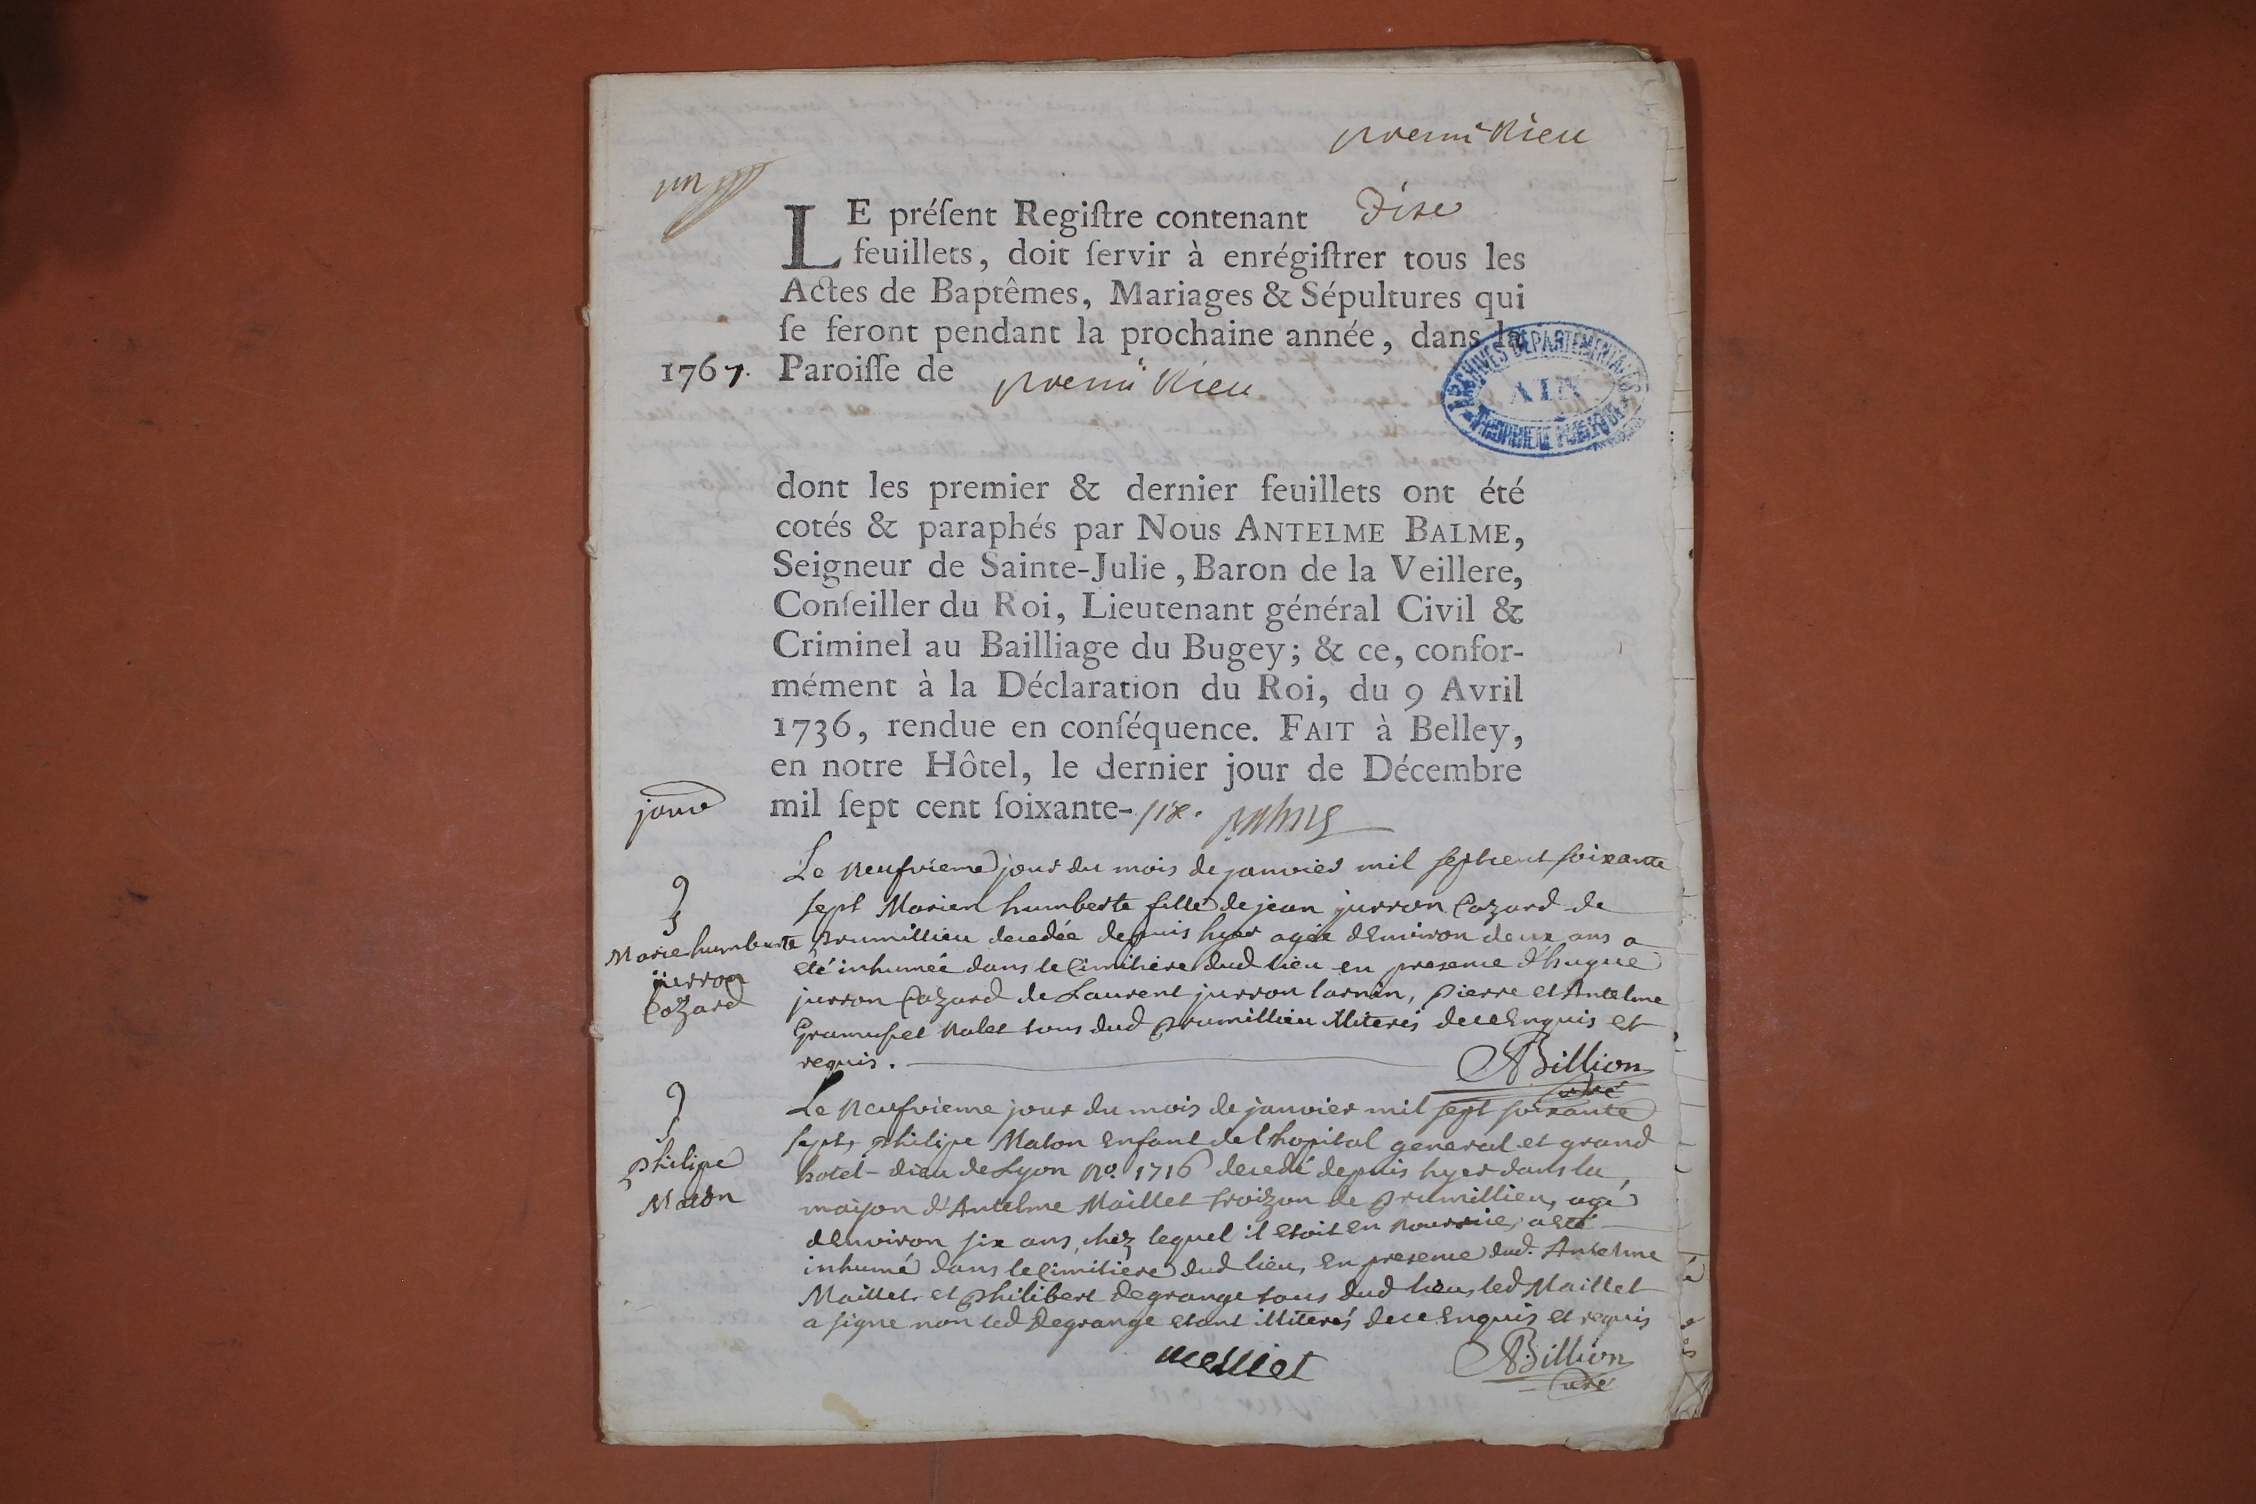 premi Rieu
un
LE préſent Regiſtre contenant dixe
feuillets, doit ſervir à enrégiſtrer tous les
Actes de Baptêmes, Mariages & Sépultures qui
ſe feront pendant la prochaine année, dans la
1767. Paroiſſe de premi Rieu
ARCHIVES DÉPARTEMENTALES
AIN
PROPRIÉTÉ PUBLIQUE
dont les premier & dernier feuillets ont été
cotés & paraphés par Nous ANTELME BALME,
Seigneur de Sainte-Julie, Baron de la Veillere,
Conſeiller du Roi, Lieutenant général Civil &
Criminel au Bailliage du Bugey; & ce, confor-
mément à la Déclaration du Roi, du 9 Avril
1736, rendue en conſéquence. FAIT à Belley,
en notre Hôtel, le dernier jour de Décembre
mil ſept cent ſoixante-six. Balme
Le neufvieme jour du mois de janvier mil septcent soixante
sept Marien humberte fille de jean jurron Cazard de
Prumillieu decedée depuis hyer agée d'Environ deux ans a
été inhumée dans le Cimitiere dud lieu en presence d'hugue
jurron Cazard de Laurent jurron larnin, Pierre et Antelme
Gramusset Nalet tous dud Prumillieu illiterés de ce Enquis et
requis.
Marie humberte
jurron
Cazard
ABillion
Curé
Le neufvieme jour du mois de janvier mil sept soixante
sept, Philipe Maton Enfant de l'hopital general et grand
hotel-dieu de Lyon No. 1716 decedé depuis hyer dans la
maison d'Antelme Maillet troizon de Prumillieu, agé
d'Environ six ans, chez lequel il etoit En nourrice, a eté
inhumé dans le Cimitiere dud lieu, En presence dud. Antelme
Maillet et Philibert Degrange tous dud lieu, led Maillet
a signe non led Degrange etant illiterés de ce Enquis et requis
Philipe
Maton
Meillet
ABillion
Curé